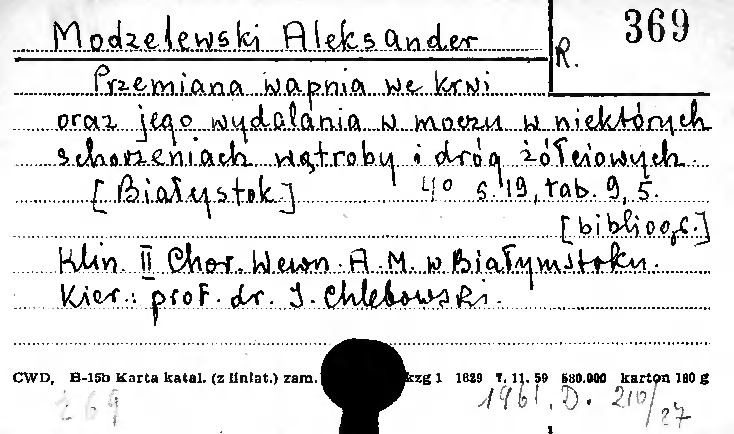 Modzelewski Aleksander
R. 369
Przemiana wapnia we krwi
oraz jego wydalania w moczu w niektórych
schorzeniach wątroby i dróg żółciowych.
[Białystok] 4° s. 19, tab. 9, 5.
Klin. II Chor. Wewn. A. M. w Białymstoku.
Kier.: prof. dr. J. Chlebowski.
CWD, B-15b Karta katal. (z liniat.) zam. kzg 1 1829 7. 11. 59 580.000 karton 180 g
269 1961. D. 210/27